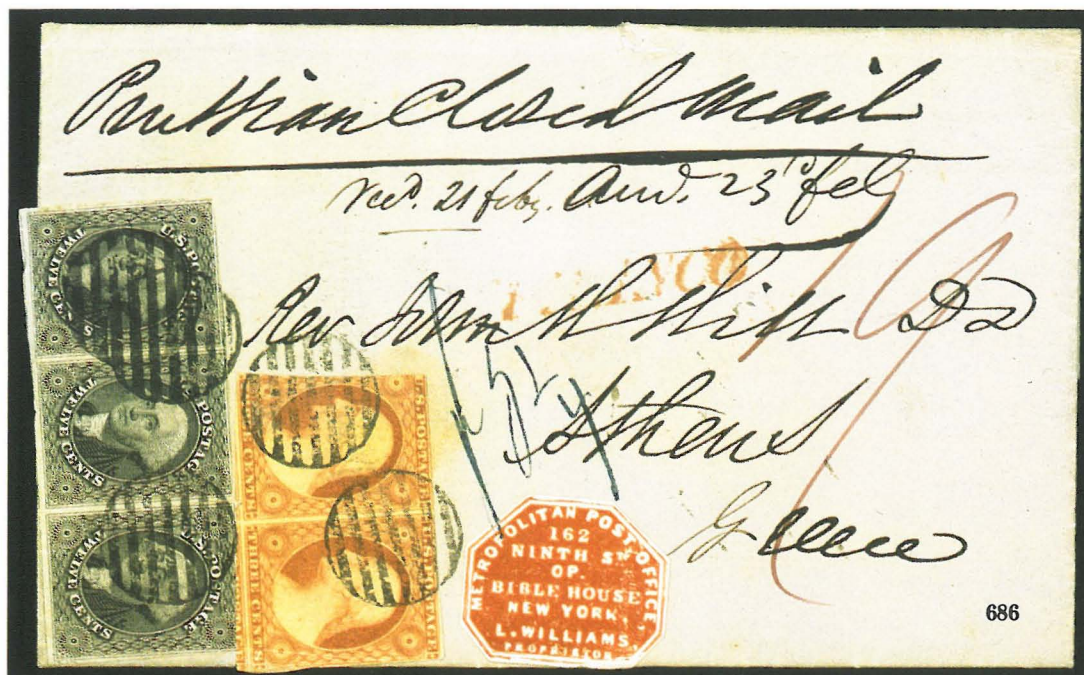 Prussian Closed Mail
Recd. 21 feby. Answd. 23d feb
Rev John H Hill DD
Athens
Greece
19
U.S. POSTAGE
TWELVE CENTS
U.S. POSTAGE
TWELVE CENTS
U.S. POSTAGE
TWELVE CENTS
U.S. POSTAGE
THREE CENTS
U.S. POSTAGE
THREE CENTS
METROPOLITAN POST OFFICE,
162
NINTH ST.
OP.
BIBLE HOUSE
NEW YORK,
L. WILLIAMS,
PROPRIETOR
686